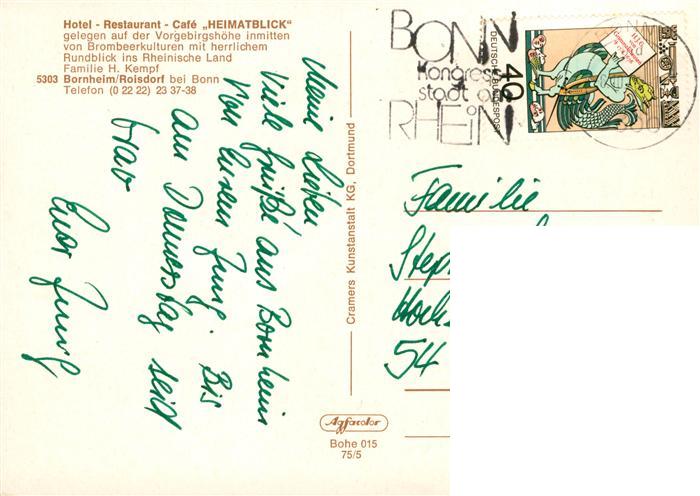 Hotel - Restaurant - Café „HEIMATBLICK"
gelegen auf der Vorgebirgshöhe inmitten
von Brombeerkulturen mit herrlichem
Rundblick ins Rheinische Land
Familie H. Kempf
5303 Bornheim/Roisdorf bei Bonn
Telefon (0 22 22) 23 37-38
Meine Lieben
Viele Grüße aus Bornheim
Von Eurem Jung. Bis
am Donnerstag seid
brav
Euer Jung
Cramers Kunstanstalt KG, Dortmund
BONN
Kongress
stadt am
RHEIN
DEUTSCHE BUNDESPOST
40
Familie
Step
54
Agfacolor
Bohe 015
75/5